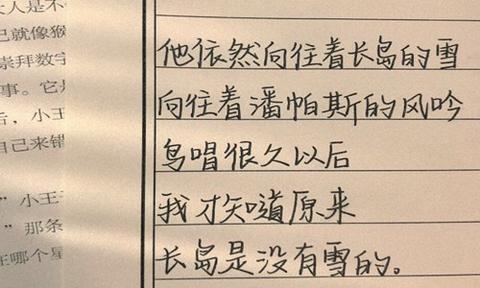 人是不
己就像猴
崇拜数字
事。它是
后，小王
自己来错
”小王
”那条
在哪个星
他依然向往着长岛的雪
向往着潘帕斯的风吟
鸟唱很久以后
我才知道原来
长岛是没有雪的。